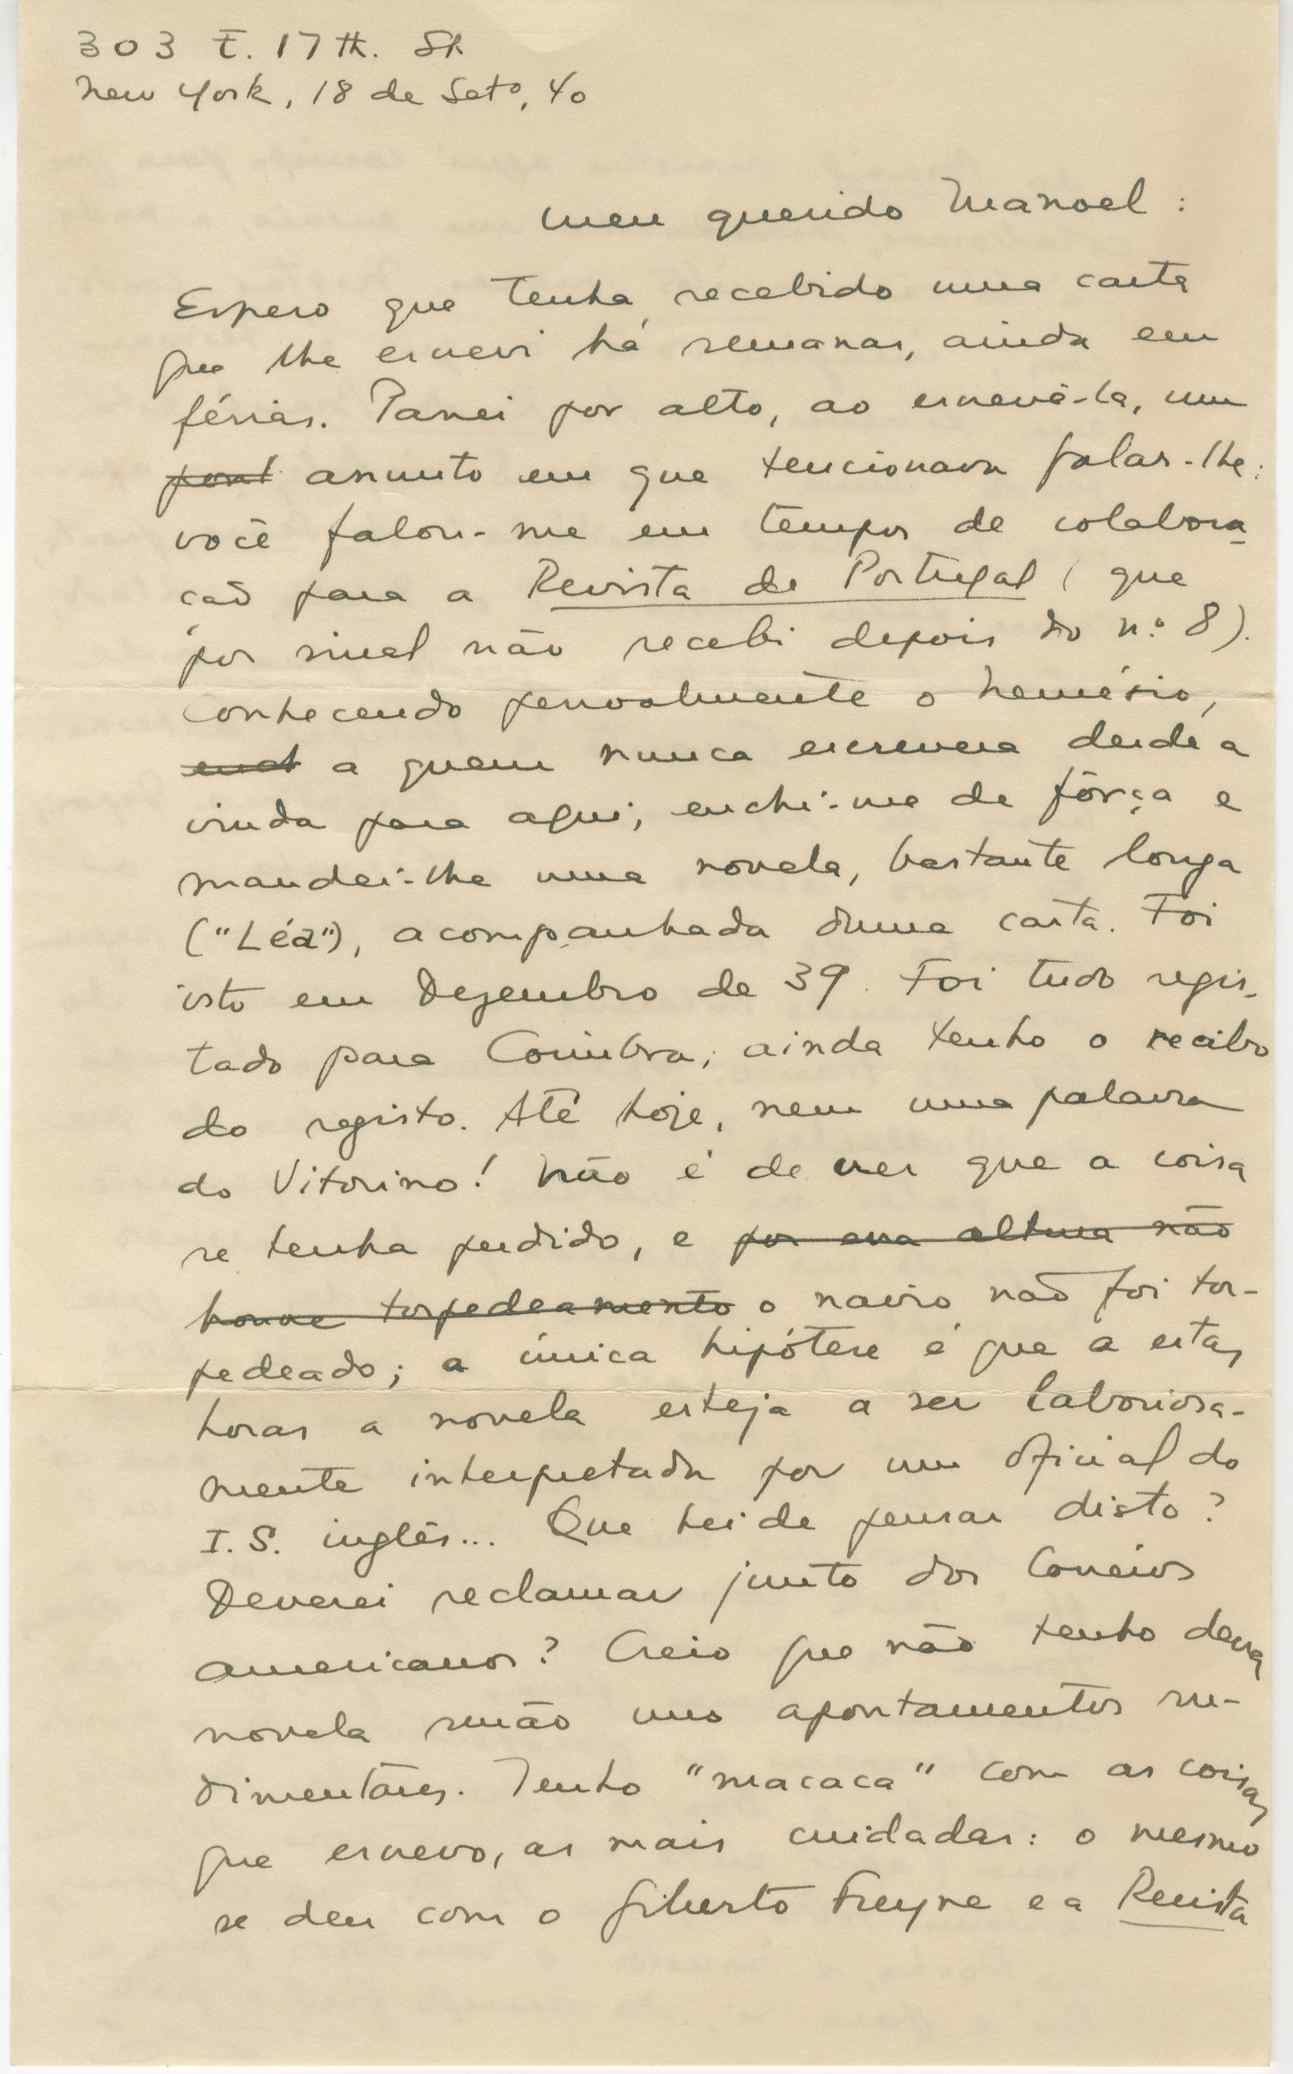 303 E. 17th. St.
New York, 18 de Setº, 40
Meu querido Manoel:
Espero que tenha recebido uma carta
que lhe escrevi há semanas, ainda em
férias. Passei por alto, ao escrevê-la, um
assunto em que tencionava falar-lhe:
você falou-me em tempos de colabora-
ção para a Revista de Portugal (que
por sinal não recebi depois do n.º 8).
Conhecendo pessoalmente o Nemésio,
a quem nunca escrevera desde a
vinda para aqui, enchi-me de fôrça e
mandei-lhe uma novela, bastante longa
("Léa"), acompanhada duma carta. Foi
isto em Dezembro de 39. Foi tudo regis-
tado para Coimbra; ainda tenho o recibo
do registo. Até hoje, nem uma palavra
do Vitorino! Não é de crer que a coisa
se tenha perdido, e por essa altura não
houve torpedeamento o navio não foi tor-
pedeado; a única hipótese é que a estas
horas a novela esteja a ser laboriosa-
mente interpretada por um oficial do
I. S. inglês... Que hei de pensar disto?
Deverei reclamar junto dos Correios
americanos? Creio que não tenho dessa
novela senão uns apontamentos ru-
dimentares. Tenho "macaca" com as coisas
que escrevo, as mais cuidadas: o mesmo
se deu com o Gilberto Freyre e a Revista